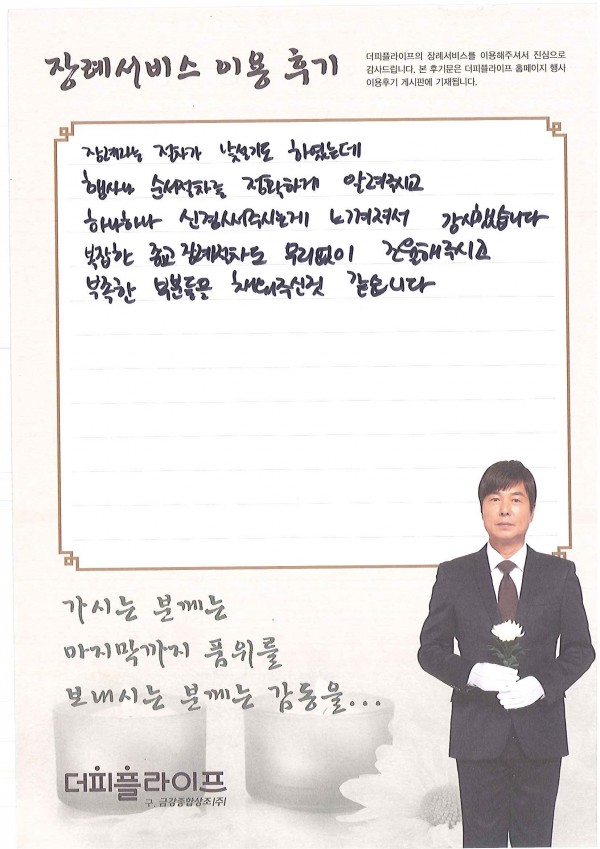 장례서비스 이용 후기
더피플라이프의 장례서비스를 이용해주셔서 진심으로
감사드립니다. 본 후기문은 더피플라이프 홈페이지 행사
이용후기 게시판에 기재됩니다.
장례라는 절차가 낯설기도 하였는데
순서절차를 정확하게 알려주시고
하나하나 신경써주시는게 느껴져서 감사했습니다
복잡한 종교 장례절차도 무리없이 진행해주시고
부족한 부분들을 채워주신것 같습니다
가시는 분께는
마지막까지 품위를
보내시는 분께는 감동을...
더피플라이프
구. 금강종합상조(주)